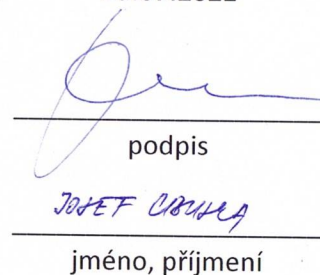 podpis
JOSEF CIBULKA
jméno, příjmení